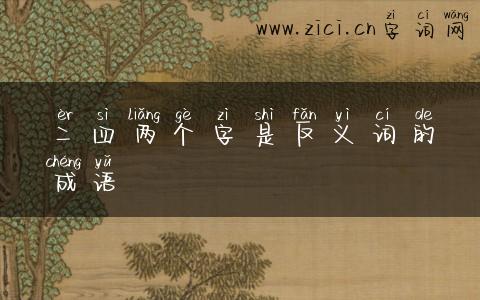 zì cí wǎng
www.zici.cn字词网
èr sì liǎng gè zì shì fǎn yì cí de
二四两个字是反义词的
chéng yǔ
成语